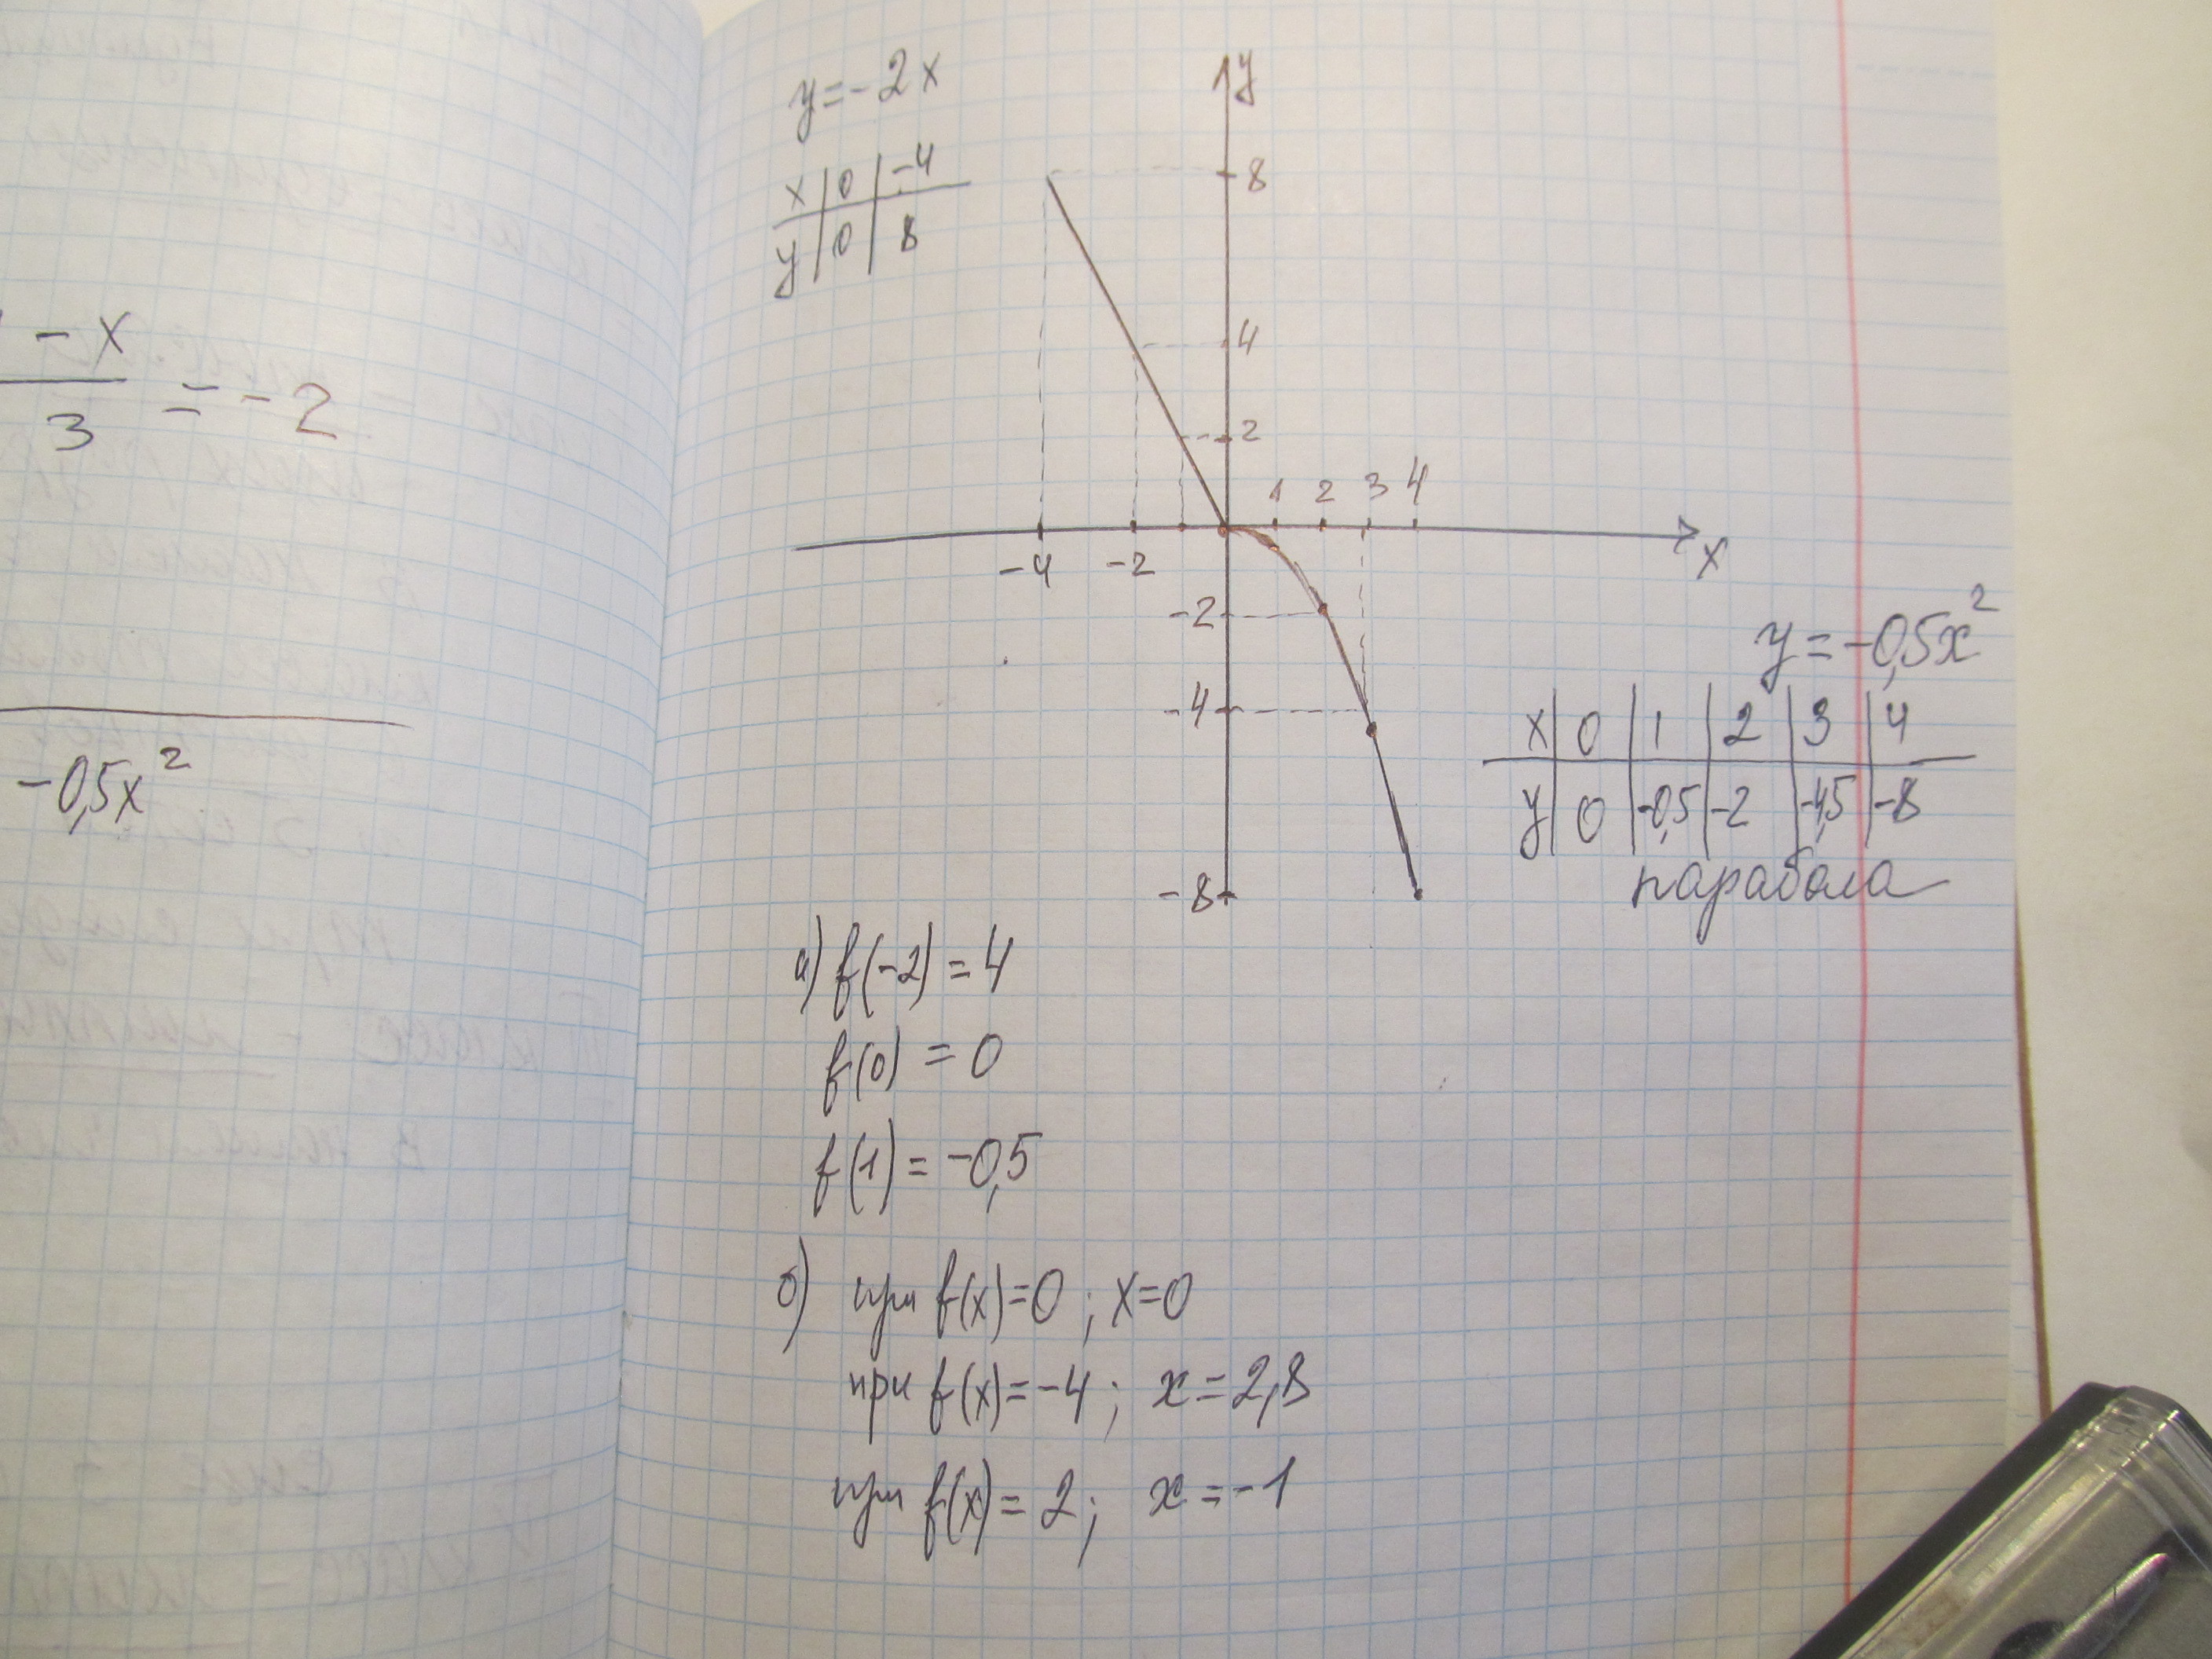 - x
3 = -2
-0,5x²
y = -2x
x | 0 | -4
y | 0 | 8
y
8
4
2
1 2 3 4
x
-4 -2
-2
-4
-8
y = -0,5x²
x | 0 | 1 | 2 | 3 | 4
y | 0 | -0,5 | -2 | -4,5 | -8
парабола
а) f(-2) = 4
f(0) = 0
f(1) = -0,5
б) при f(x)=0 ; x=0
при f(x)=-4 ; x=2,8
при f(x)= 2 ; x=-1